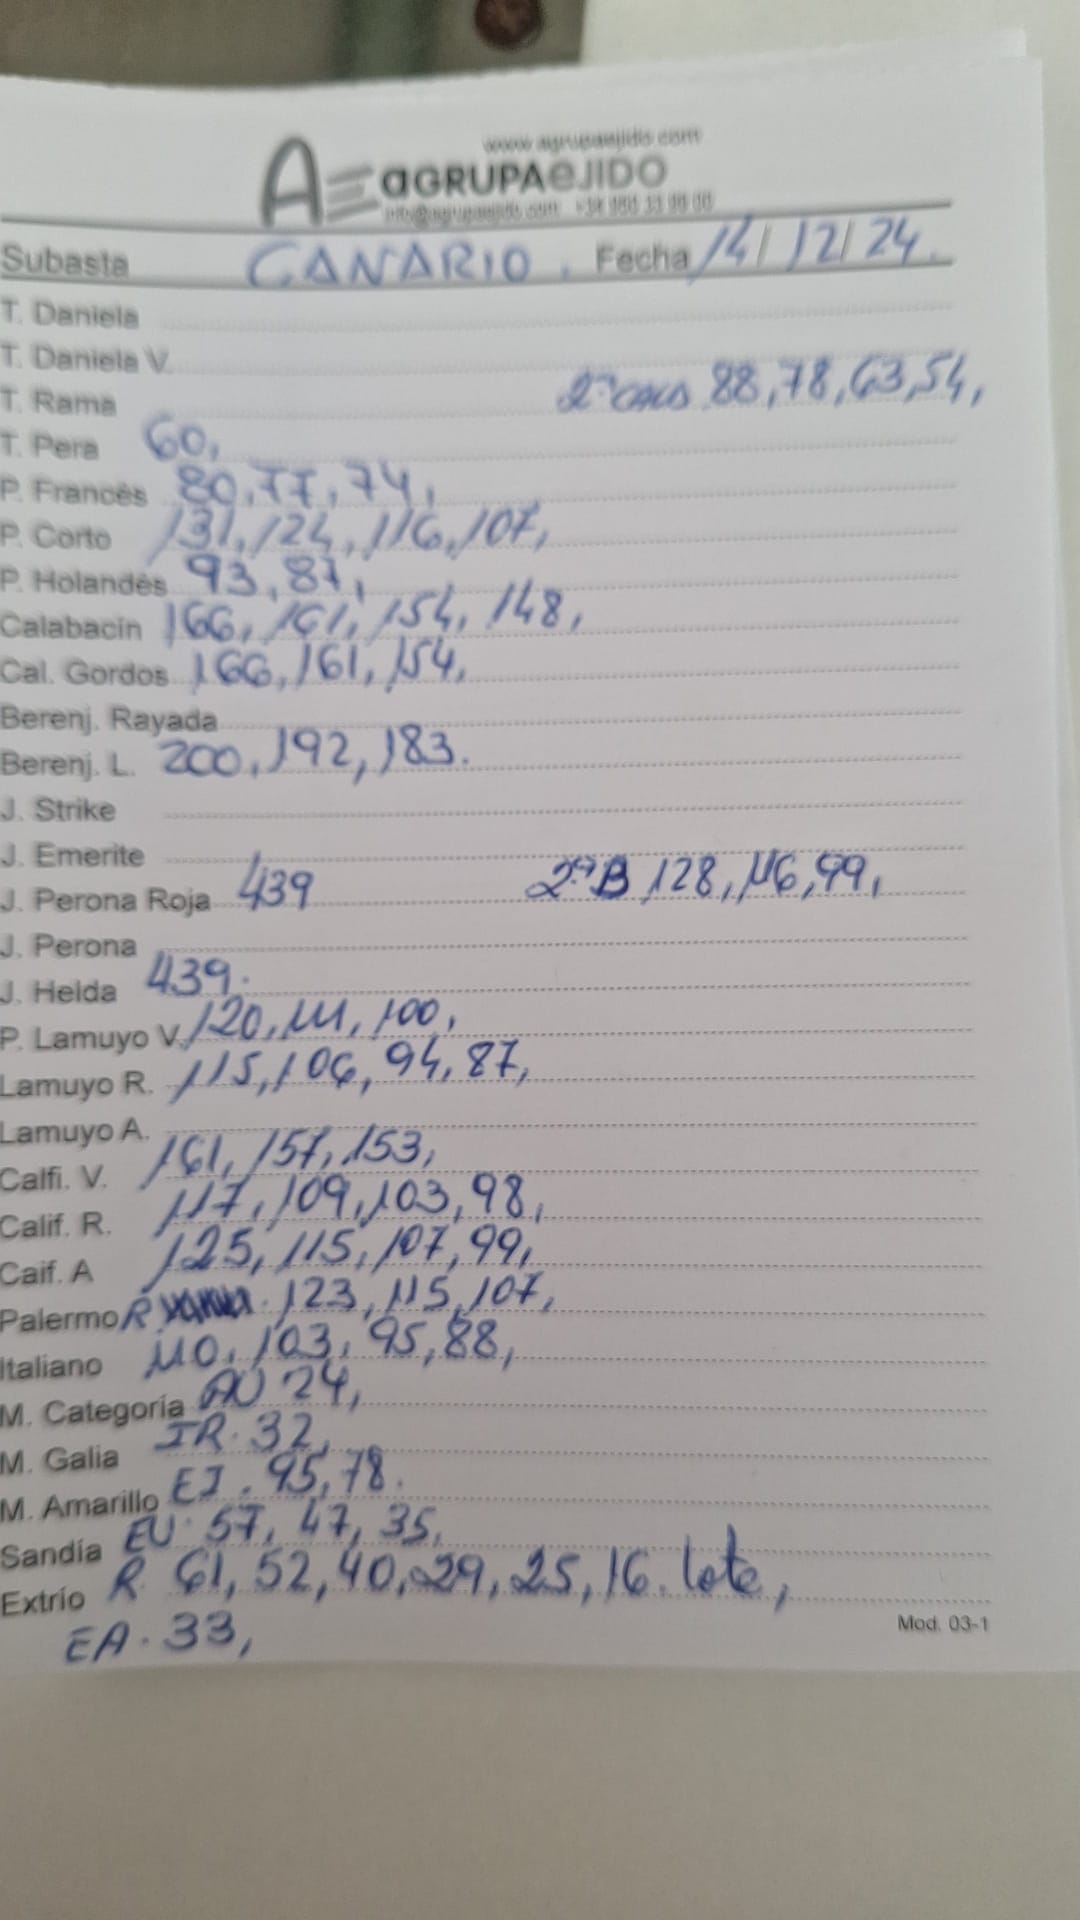 www.agrupaejido.com
AGRUPAEJIDO
info@agrupaejido.com
Subasta CANARIO. Fecha 14/12/24.
T. Daniela
T. Daniela V.
T. Rama 88, 78, 63, 54,
T. Pera 60,
P. Francés 80, 77, 74,
P. Corto 131, 124, 116, 107,
P. Holandés 93, 87,
Calabacín 166, 161, 154, 148,
Cal. Gordos 166, 161, 154,
Berenj. Rayada
Berenj. L. 200, 192, 183.
J. Strike
J. Emerite
J. Perona Roja 439 2ª B 128, 116, 99,
J. Perona
J. Helda 439.
P. Lamuyo V. 120, 111, 100,
Lamuyo R. 115, 106, 94, 87,
Lamuyo A.
Calfi. V. 161, 157, 153,
Calif. R. 117, 109, 103, 98,
Caif. A 125, 115, 107, 99,
Palermo R 123, 115, 107,
Italiano 110, 103, 95, 88,
M. Categoría AU 24,
M. Galia IR. 32,
M. Amarillo EJ. 95, 78.
Sandía EU. 57, 47, 35,
Extrío R. 61, 52, 40, 29, 25, 16. lote,
EA. 33,
Mod. 03-1